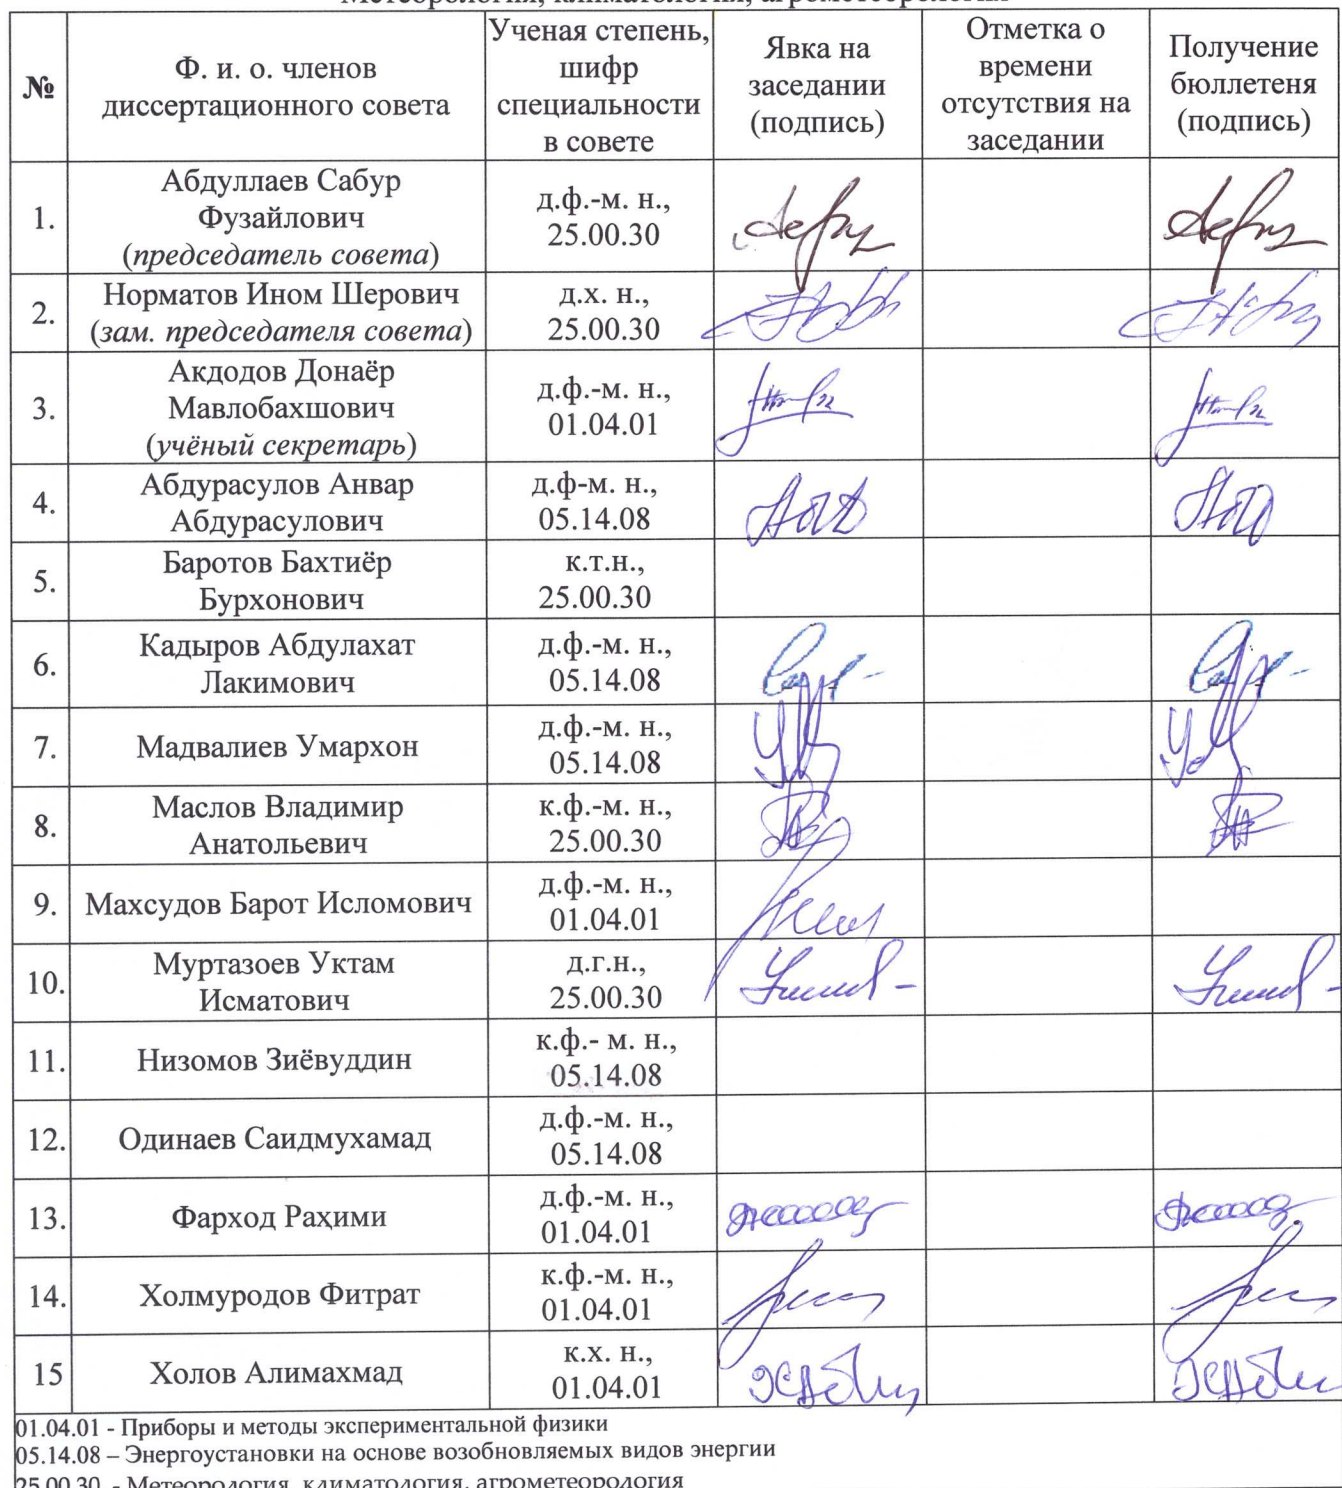 Метеорология, климатология, агрометеорология
№
Ф. и. о. членов
диссертационного совета
Ученая степень,
шифр
специальности
в совете
Явка на
заседании
(подпись)
Отметка о
времени
отсутствия на
заседании
Получение
бюллетеня
(подпись)
1.
Абдуллаев Сабур
Фузайлович
(председатель совета)
д.ф.-м. н.,
25.00.30
2.
Норматов Ином Шерович
(зам. председателя совета)
д.х. н.,
25.00.30
3.
Акдодов Донаёр
Мавлобахшович
(учёный секретарь)
д.ф.-м. н.,
01.04.01
4.
Абдурасулов Анвар
Абдурасулович
д.ф-м. н.,
05.14.08
5.
Баротов Бахтиёр
Бурхонович
к.т.н.,
25.00.30
6.
Кадыров Абдулахат
Лакимович
д.ф.-м. н.,
05.14.08
7.
Мадвалиев Умархон
д.ф.-м. н.,
05.14.08
8.
Маслов Владимир
Анатольевич
к.ф.-м. н.,
25.00.30
9.
Махсудов Барот Исломович
д.ф.-м. н.,
01.04.01
10.
Муртазоев Уктам
Исматович
д.г.н.,
25.00.30
11.
Низомов Зиёвуддин
к.ф.- м. н.,
05.14.08
12.
Одинаев Саидмухамад
д.ф.-м. н.,
05.14.08
13.
Фарход Раҳими
д.ф.-м. н.,
01.04.01
14.
Холмуродов Фитрат
к.ф.-м. н.,
01.04.01
15
Холов Алимахмад
к.х. н.,
01.04.01
01.04.01 - Приборы и методы экспериментальной физики
05.14.08 – Энергоустановки на основе возобновляемых видов энергии
25.00.30 - Метеорология, климатология, агрометеорология